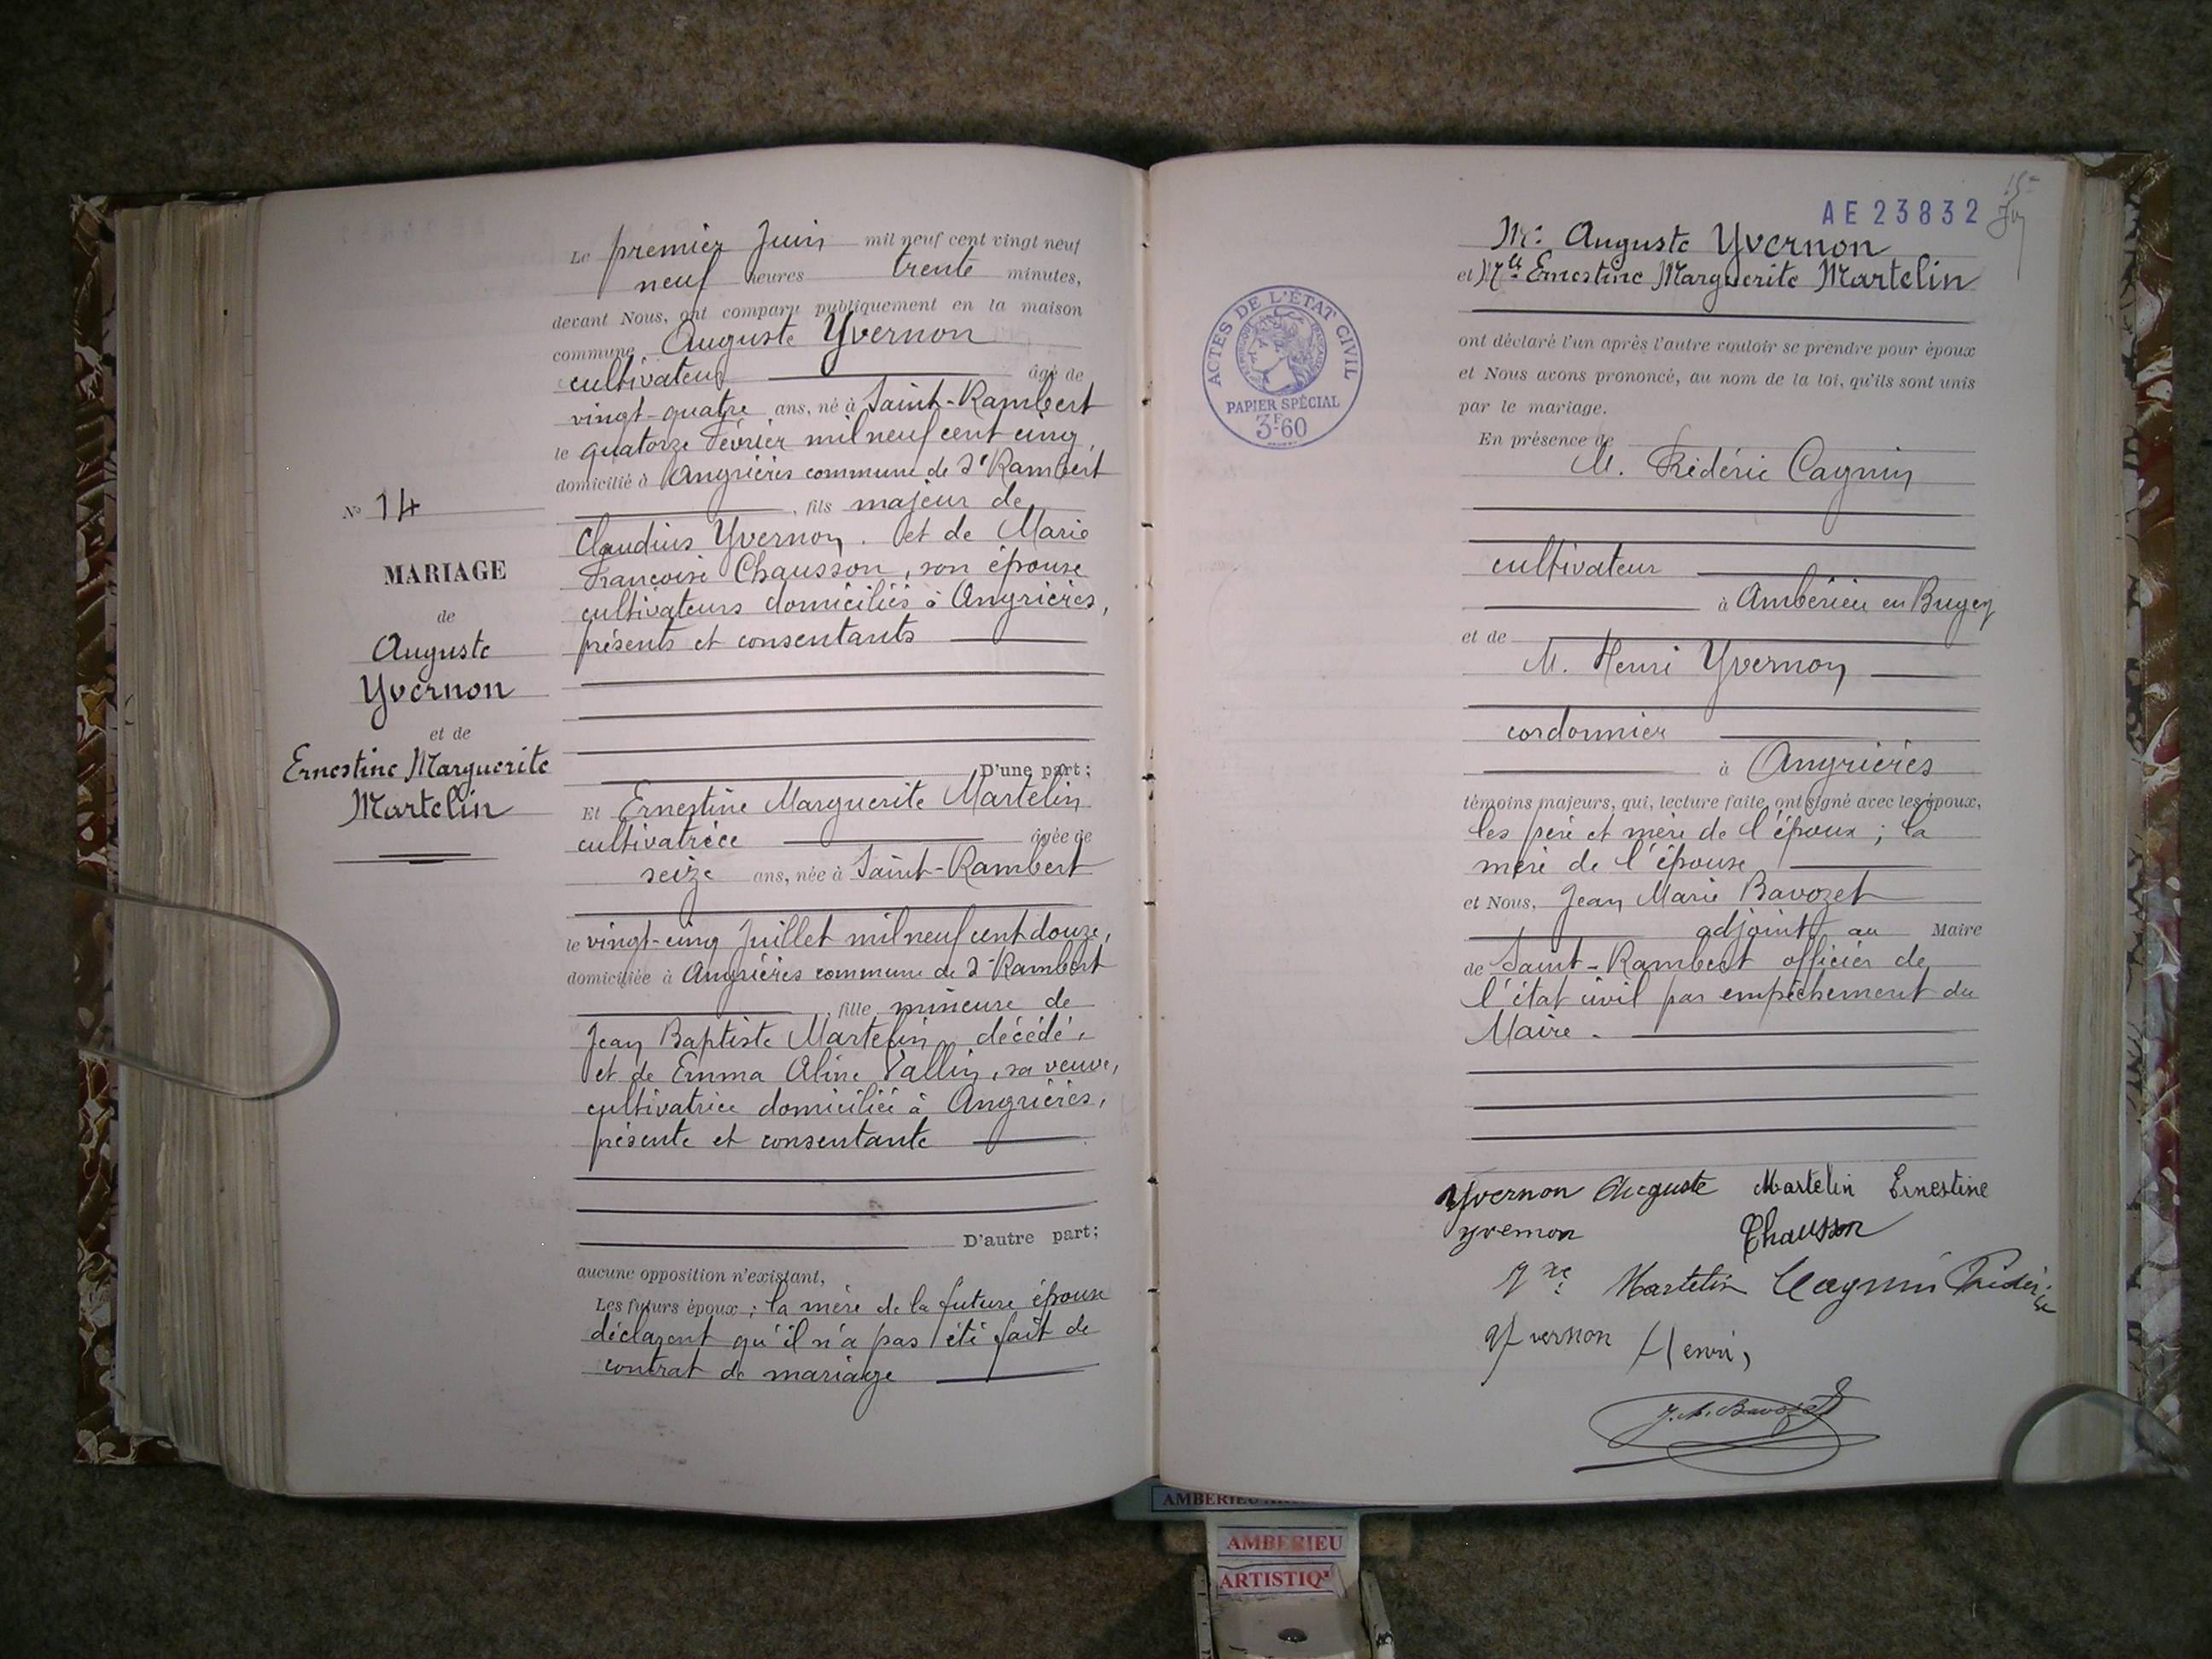 Le premier Juin mil neuf cent vingt neuf
neuf heures trente minutes,
devant Nous, ont comparu publiquement en la maison
commune Auguste Yvernon
cultivateur âgé de
vingt-quatre ans, né à Saint-Rambert
le quatorze Février mil neuf cent cinq,
domicilié à Angrières commune de St Rambert
, fils majeur de
Claudius Yvernon. et de Marie
Françoise Chausson, son épouse
cultivateurs domiciliés à Angrières,
présents et consentants
D'une part;
Et Ernestine Marguerite Martelin
cultivatrice âgée de
seize ans, née à Saint-Rambert
le vingt-cinq Juillet mil neuf cent douze,
domiciliée à Angrières commune de St Rambert
, fille mineure de
Jean Baptiste Martelin, décédé,
et de Emma Aline Vallin, sa veuve,
cultivatrice domiciliée à Angrières,
présente et consentante
D'autre part;
aucune opposition n'existant,
Les futurs époux; la mère de la future épouse
déclarent qu'il n'a pas été fait de
contrat de mariage
No 14
MARIAGE
de
Auguste
Yvernon
et de
Ernestine Marguerite
Martelin
AE 23832
Mr Auguste Yvernon
et Mlle Ernestine Marguerite Martelin
ont déclaré l'un après l'autre vouloir se prendre pour époux
et Nous avons prononcé, au nom de la loi, qu'ils sont unis
par le mariage.
En présence de
M. Frédéric Cagnin
cultivateur
à Ambérieu en Bugey
et de
M. Henri Yvernon
cordonnier
à Angrières
témoins majeurs, qui, lecture faite, ont signé avec les époux,
les père et mère de l'époux; la
mère de l'épouse
et Nous, Jean Marie Bavozet
adjoint au Maire
de Saint-Rambert officier de
l'état civil par empêchement du
Maire.
Yvernon Auguste Martelin Ernestine
Yvernon Chausson
Martelin Cagnin Frédéric
Yvernon Henri,
J. M. Bavozet
ACTES DE L'ÉTAT CIVIL
PAPIER SPÉCIAL
3F60
AMBERIEU
AMBERIEU
ARTISTIQ